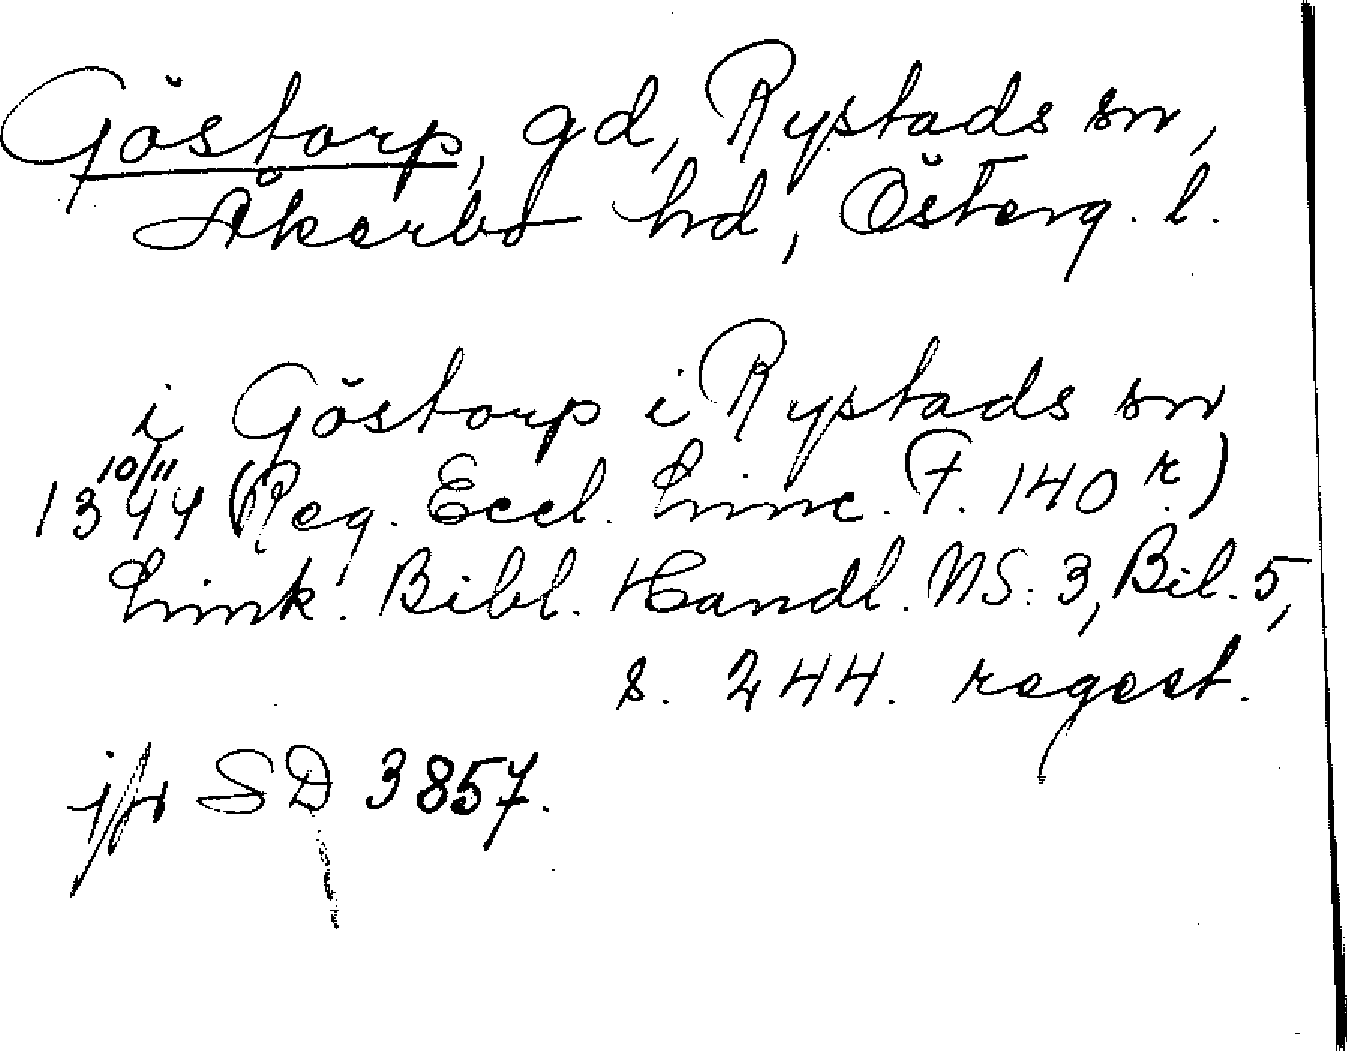 Göstorp, gd, Rystads sn,
Åkerbo hd, Österg. l.
i Göstorp i Rystads sn
10/11
1344 (Reg. Eccl. Linc. F. 140 r.)
Link. Bibl. Handl. NS: 3, Bil. 5,
s. 244. regest.
jfr SD 3857.